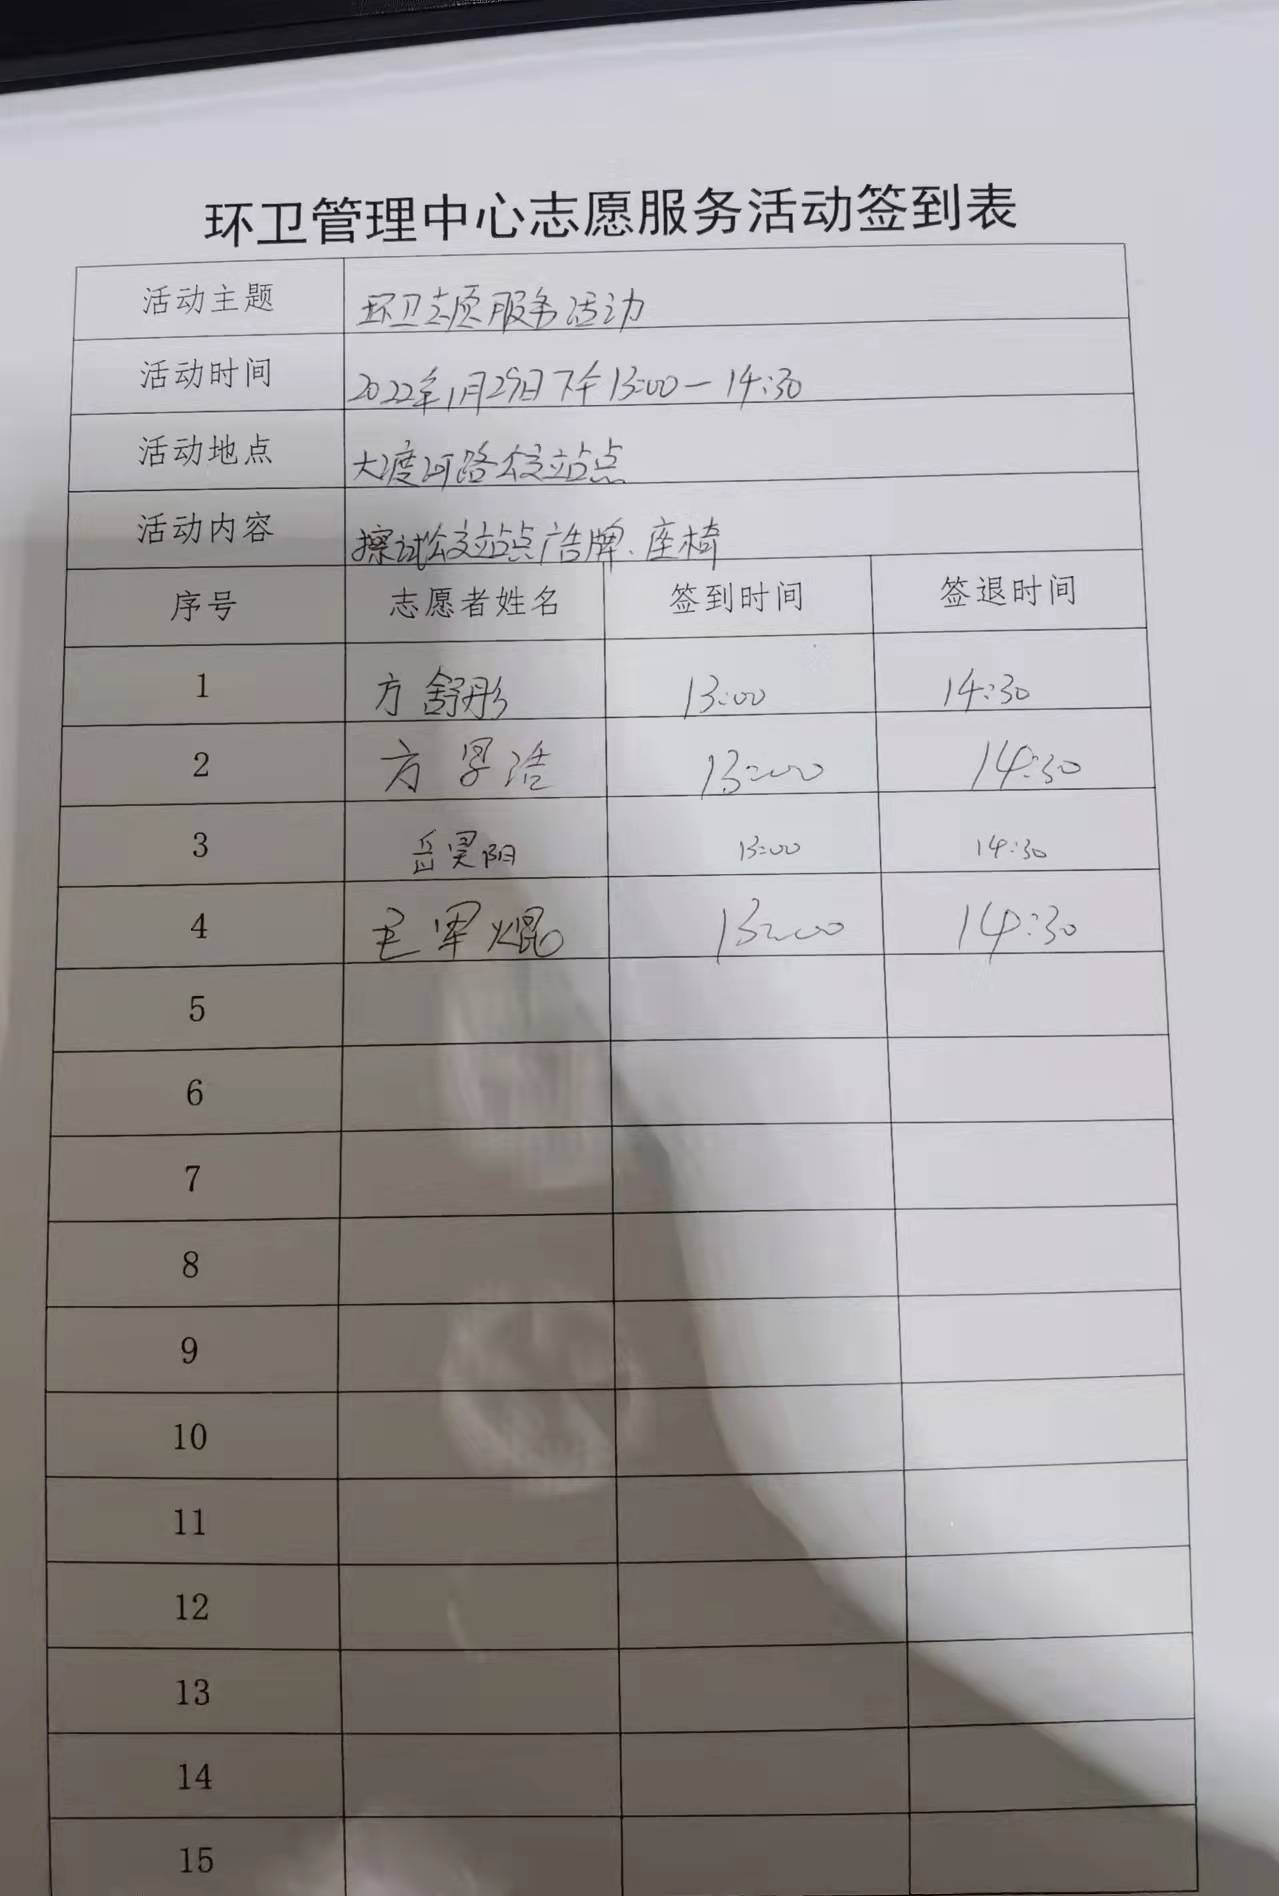 环卫管理中心志愿服务活动签到表
活动主题 环卫志愿服务活动
活动时间 2022年1月29日下午13:00-14:30
活动地点 大渡河路公交站点
活动内容 擦试公交站点广告牌、座椅
序号 志愿者姓名 签到时间 签退时间
1 方舒彤 13:00 14:30
2 方 浩 13:00 14:30
3 岳昊阳 13:00 14:30
4 军焜 13:00 14:30
5
6
7
8
9
10
11
12
13
14
15